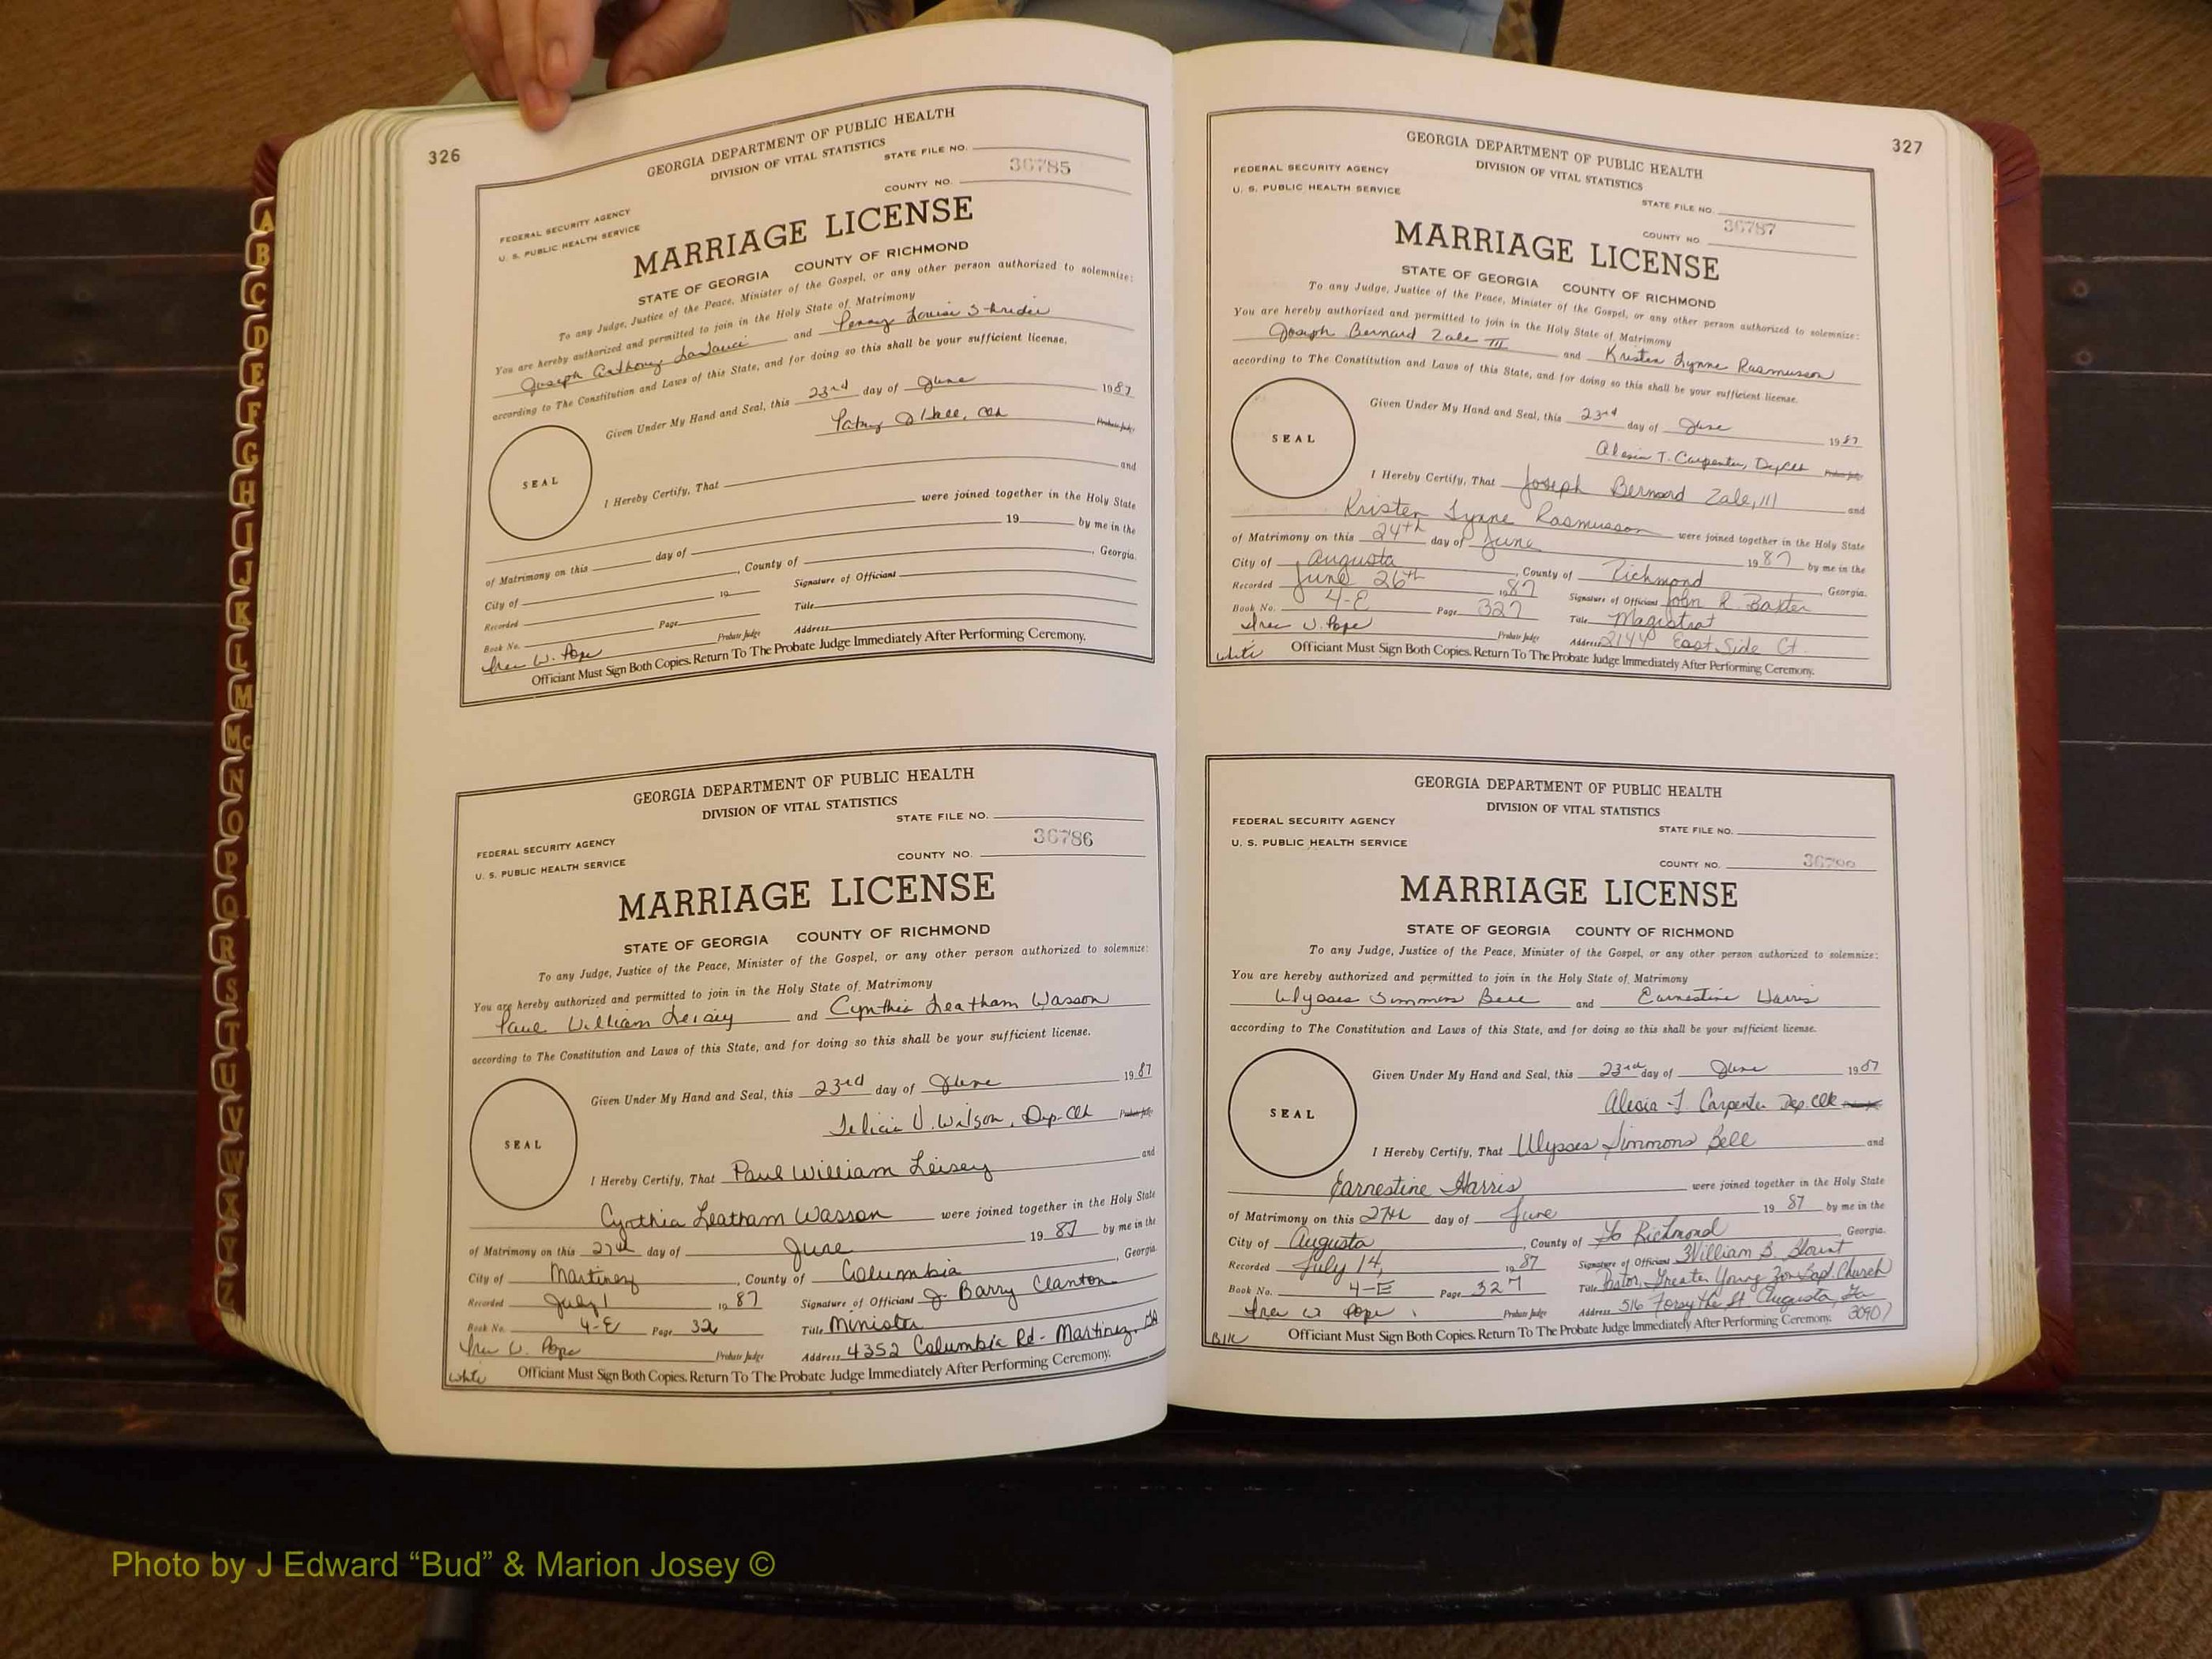 326
GEORGIA DEPARTMENT OF PUBLIC HEALTH
DIVISION OF VITAL STATISTICS
STATE FILE NO.
36785
COUNTY NO.
FEDERAL SECURITY AGENCY
U. S. PUBLIC HEALTH SERVICE
MARRIAGE LICENSE
STATE OF GEORGIA COUNTY OF RICHMOND
To any Judge, Justice of the Peace, Minister of the Gospel, or any other person authorized to solemnize:
You are hereby authorized and permitted to join in the Holy State of Matrimony
Joseph Anthony and Penny Louise
according to The Constitution and Laws of this State, and for doing so this shall be your sufficient license.
Given Under My Hand and Seal, this 23rd day of June 1987
Hall, Clk Probate Judge
SEAL
I Hereby Certify, That and
were joined together in the Holy State
of Matrimony on this day of 19 by me in the
City of , County of , Georgia.
Recorded 19 Signature of Officiant
Book No. Page Title
W. Pope Probate Judge Address
Officiant Must Sign Both Copies. Return To The Probate Judge Immediately After Performing Ceremony.
GEORGIA DEPARTMENT OF PUBLIC HEALTH
DIVISION OF VITAL STATISTICS
STATE FILE NO.
36786
FEDERAL SECURITY AGENCY
COUNTY NO.
U. S. PUBLIC HEALTH SERVICE
MARRIAGE LICENSE
STATE OF GEORGIA COUNTY OF RICHMOND
To any Judge, Justice of the Peace, Minister of the Gospel, or any other person authorized to solemnize:
You are hereby authorized and permitted to join in the Holy State of Matrimony
Paul William Leisey and Cynthia Leatham Wasson
according to The Constitution and Laws of this State, and for doing so this shall be your sufficient license.
Given Under My Hand and Seal, this 23rd day of June 1987
Felicia V. Wilson, Dep. Clk Probate Judge
SEAL
I Hereby Certify, That Paul William Leisey and
Cynthia Leatham Wasson were joined together in the Holy State
of Matrimony on this 27th day of June 19 87 by me in the
City of Martinez , County of Columbia , Georgia.
Recorded July 1 19 87 Signature of Officiant J. Barry Clanton
Book No. 4-E Page 326 Title Minister
W. Pope Probate Judge Address 4352 Columbia Rd - Martinez, GA
white Officiant Must Sign Both Copies. Return To The Probate Judge Immediately After Performing Ceremony.
327
GEORGIA DEPARTMENT OF PUBLIC HEALTH
DIVISION OF VITAL STATISTICS
FEDERAL SECURITY AGENCY
U. S. PUBLIC HEALTH SERVICE
STATE FILE NO.
36787
COUNTY NO.
MARRIAGE LICENSE
STATE OF GEORGIA COUNTY OF RICHMOND
To any Judge, Justice of the Peace, Minister of the Gospel, or any other person authorized to solemnize:
You are hereby authorized and permitted to join in the Holy State of Matrimony
Joseph Bernard Zale III and Kristen Lynne Rasmusson
according to The Constitution and Laws of this State, and for doing so this shall be your sufficient license.
Given Under My Hand and Seal, this 23rd day of June 1987
Alesia T. Carpenter, Dep Clk Probate Judge
SEAL
I Hereby Certify, That Joseph Bernard Zale, III and
Kristen Lynne Rasmusson were joined together in the Holy State
of Matrimony on this 24th day of June 1987 by me in the
City of Augusta , County of Richmond , Georgia.
Recorded June 26th 1987 Signature of Officiant John R. Baxter
Book No. 4-E Page 327 Title Magistrat
W. Pope Probate Judge Address 2144 East Side Ct.
white Officiant Must Sign Both Copies. Return To The Probate Judge Immediately After Performing Ceremony.
GEORGIA DEPARTMENT OF PUBLIC HEALTH
DIVISION OF VITAL STATISTICS
FEDERAL SECURITY AGENCY
STATE FILE NO.
U. S. PUBLIC HEALTH SERVICE
COUNTY NO.
MARRIAGE LICENSE
STATE OF GEORGIA COUNTY OF RICHMOND
To any Judge, Justice of the Peace, Minister of the Gospel, or any other person authorized to solemnize:
You are hereby authorized and permitted to join in the Holy State of Matrimony
Ulysses Simmons Bell and Earnestine Harris
according to The Constitution and Laws of this State, and for doing so this shall be your sufficient license.
Given Under My Hand and Seal, this 23rd day of June 1987
Alesia T. Carpenter Dep. Clk
SEAL
I Hereby Certify, That Ulysses Simmons Bell and
Earnestine Harris were joined together in the Holy State
of Matrimony on this 27th day of June 19 87 by me in the
City of Augusta , County of Richmond Georgia.
Recorded July 14, 1987 Signature of Officiant William B. Blount
Book No. 4-E Page 327 Title Pastor, Greater Young Zion Bap. Church
W. Pope Probate Judge Address 516 Forsythe St. Augusta, Ga
30901
Blk Officiant Must Sign Both Copies. Return To The Probate Judge Immediately After Performing Ceremony.
A
B
C
D
E
F
G
H
I
J
K
L
M
Mc
N
O
P
Q
R
S
T
U
V
W
X
Y
Z
Photo by J Edward “Bud” & Marion Josey ©